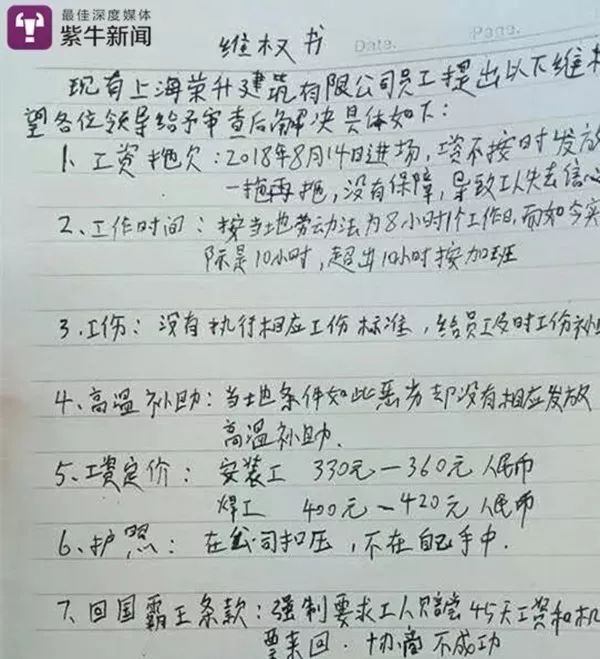 最佳深度媒体
紫牛新闻
维权书
Date.
Page.
现有上海荣升建筑有限公司员工提出以下维权
望各位领导给予审查后解决具体如下：
1、工资拖欠：2018年8月14日进场，工资不按时发放
一拖再拖，没有保障，导致工人失去信心
2、工作时间：按当地劳动法为8小时1个工作日，而如今实
际是10小时，超出10小时按加班
3、工伤：没有执行相应工伤标准，给员工及时工伤补助
4、高温补助：当地条件如此恶劣却没有相应发放
高温补助.
5、工资定价：安装工 330元—360元人民币
焊工 400元—420元人民币
6、护照：在公司扣压，不在自己手中.
7、回国霸王条款：强制要求工人赔偿45天工资和机
票来回.协商不成功